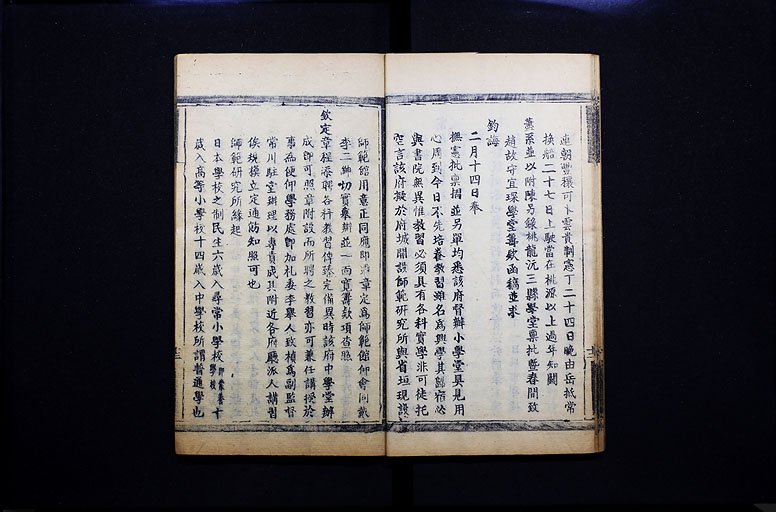 連朝豐穰可卜雲貴制憲丁二十四日晚由岳抵常
換船二十七日上駛當在桃源以上過年知關
藎系並以附陳另錄桃龍沅三縣學堂稟批暨春間致
趙故守宜琛學堂籌欵函稿並奉
鈞誨
二月十四日奉
撫憲批稟摺並另單均悉該府督辦小學堂具見用
心周到今日不先培養教習雖名爲興學其歸宿必
與書院無異惟教習必須具有各科實學非可徒托
空言該府擬於府城開設師範研究所與省垣現設
師範館用意正同應即遵章定爲師範館仰會同戴
李二紳切實舉辦並一面寬籌欵項查照
欽定章程添聘各科教習俾臻完備異時該府中學堂辦
成即可照章附設而所聘之教習亦可兼任講授於
事爲便仰學務處即加札委李舉人致楨爲副監督
常川駐堂辦理以專責成其附近各府廳派人講習
俟規模立定通飭知照可也
師範研究所緣起
日本學校之制民生六歲入尋常小學校即蒙養學校十
歲入高等小學校十四歲入中學校所謂普通學也